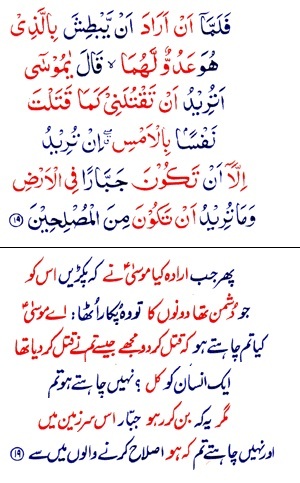 فَلَمَّآ اَنْ اَرَادَ اَنْ يَّبْطِشَ بِالَّذِيْ
هُوَ عَدُوٌّ لَّهُمَا ۙ قَالَ يٰمُوْسٰٓى
اَتُرِيْدُ اَنْ تَقْتُلَنِيْ كَمَا قَتَلْتَ
نَفْسًۢا بِالْاَمْسِ ۖ اِنْ تُرِيْدُ
اِلَّآ اَنْ تَكُوْنَ جَبَّارًا فِي الْاَرْضِ
وَمَا تُرِيْدُ اَنْ تَكُوْنَ مِنَ الْمُصْلِحِيْنَ ۱۹
پھر جب ارادہ کیا موسیٰؑ نے کہ پکڑیں اس کو
جو دشمن تھا دونوں کا تو وہ پکار اُٹھا: اے موسیٰؑ
کیا تم چاہتے ہو کہ قتل کر دو مجھے جیسے تم نے قتل کر دیا تھا
ایک انسان کو کل؟ نہیں چاہتے ہو تم
مگر یہ کہ بن کر رہو جبّار اس سرزمین میں
اور نہیں چاہتے تم کہ ہو اصلاح کرنے والوں میں سے ۱۹